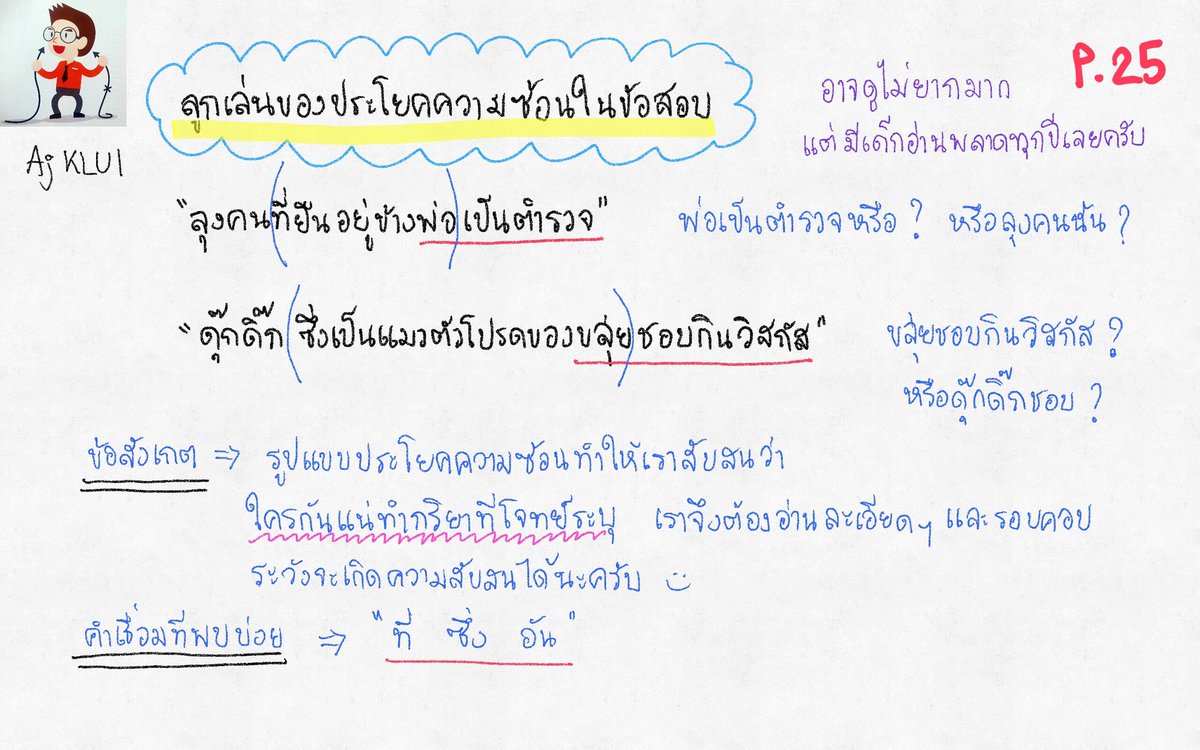 P.25
ลูกเล่นของประโยคความซ้อนในข้อสอบ
อาจดูไม่ยากมาก
แต่มีเด็กอ่านพลาดทุกปีเลยครับ
Aj KLUI
"ลุงคนที่ยืนอยู่ข้างพ่อเป็นตำรวจ" พ่อเป็นตำรวจหรือ? หรือลุงคนนั้น?
"ดุ๊กดิ๊กซึ่งเป็นแมวตัวโปรดของขลุ่ยชอบกินวิสกัส" ขลุ่ยชอบกินวิสกัส?
หรือดุ๊กดิ๊กชอบ?
ข้อสังเกต ⇒ รูปแบบประโยคความซ้อนทำให้เราสับสนว่า
ใครกันแน่ทำกริยาที่โจทย์ระบุ เราจึงต้องอ่านละเอียดๆ และรอบคอบ
ระวังจะเกิดความสับสนได้นะครับ
คำเชื่อมที่พบบ่อย ⇒ "ที่ ซึ่ง อัน"